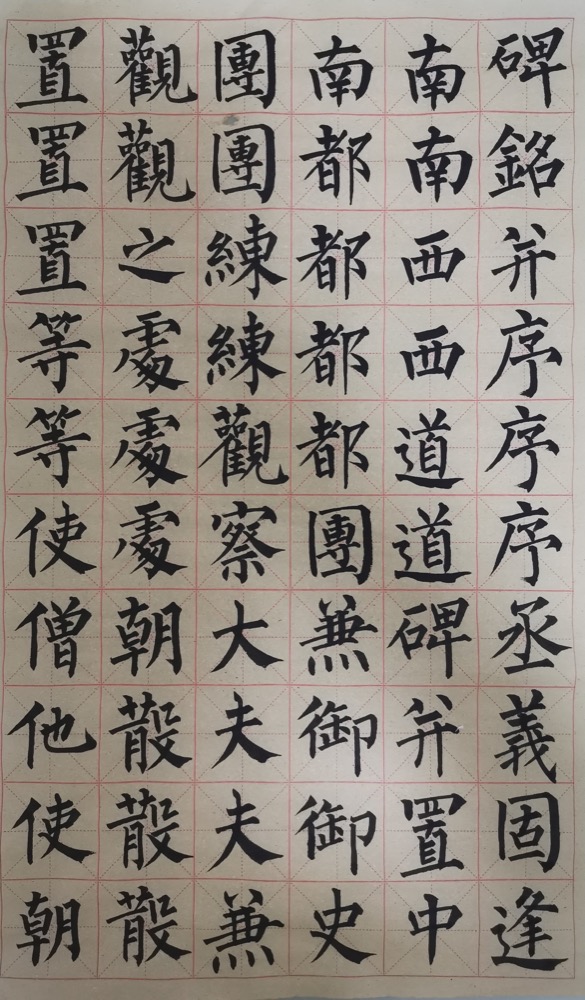 碑銘并序序序丞義固逢
南南西西道道碑并置中
南都都都都團兼御御史
團團練練觀察大夫夫兼
觀觀之處處處朝散散散
置置置等等使僧他使朝